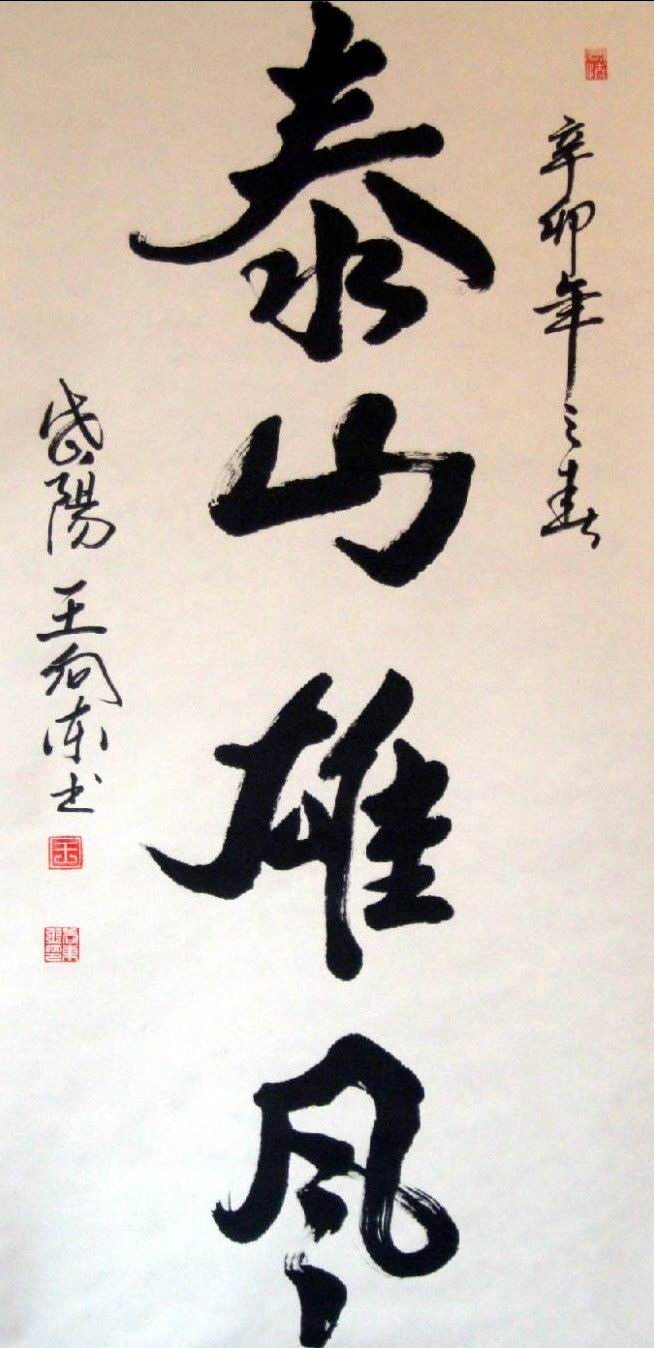 辛卯年之春
泰山雄风
岱陽王向东书
王